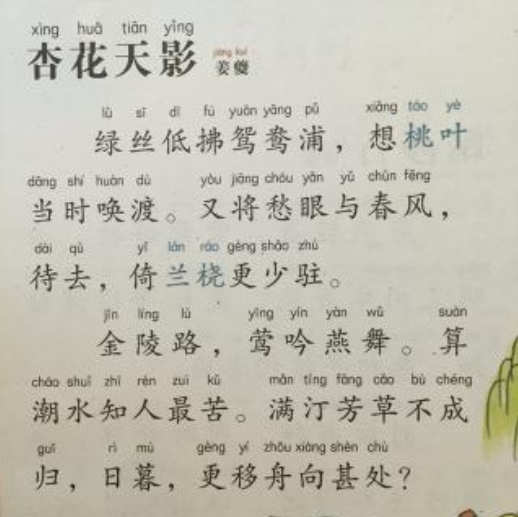 xìng huā tiān yǐng
杏花天影
jiāng kuí
姜夔
lǜ sī dī fú yuān yāng pǔ xiǎng táo yè
绿丝低拂鸳鸯浦，想桃叶
dāng shí huàn dù yòu jiāng chóu yǎn yǔ chūn fēng
当时唤渡。又将愁眼与春风，
dài qù yǐ lán ráo gèng shǎo zhù
待去，倚兰桡更少驻。
jīn líng lù yīng yín yàn wǔ suàn
金陵路，莺吟燕舞。算
cháo shuǐ zhī rén zuì kǔ mǎn tīng fāng cǎo bù chéng
潮水知人最苦。满汀芳草不成
guī rì mù gèng yí zhōu xiàng shèn chù
归，日暮，更移舟向甚处？